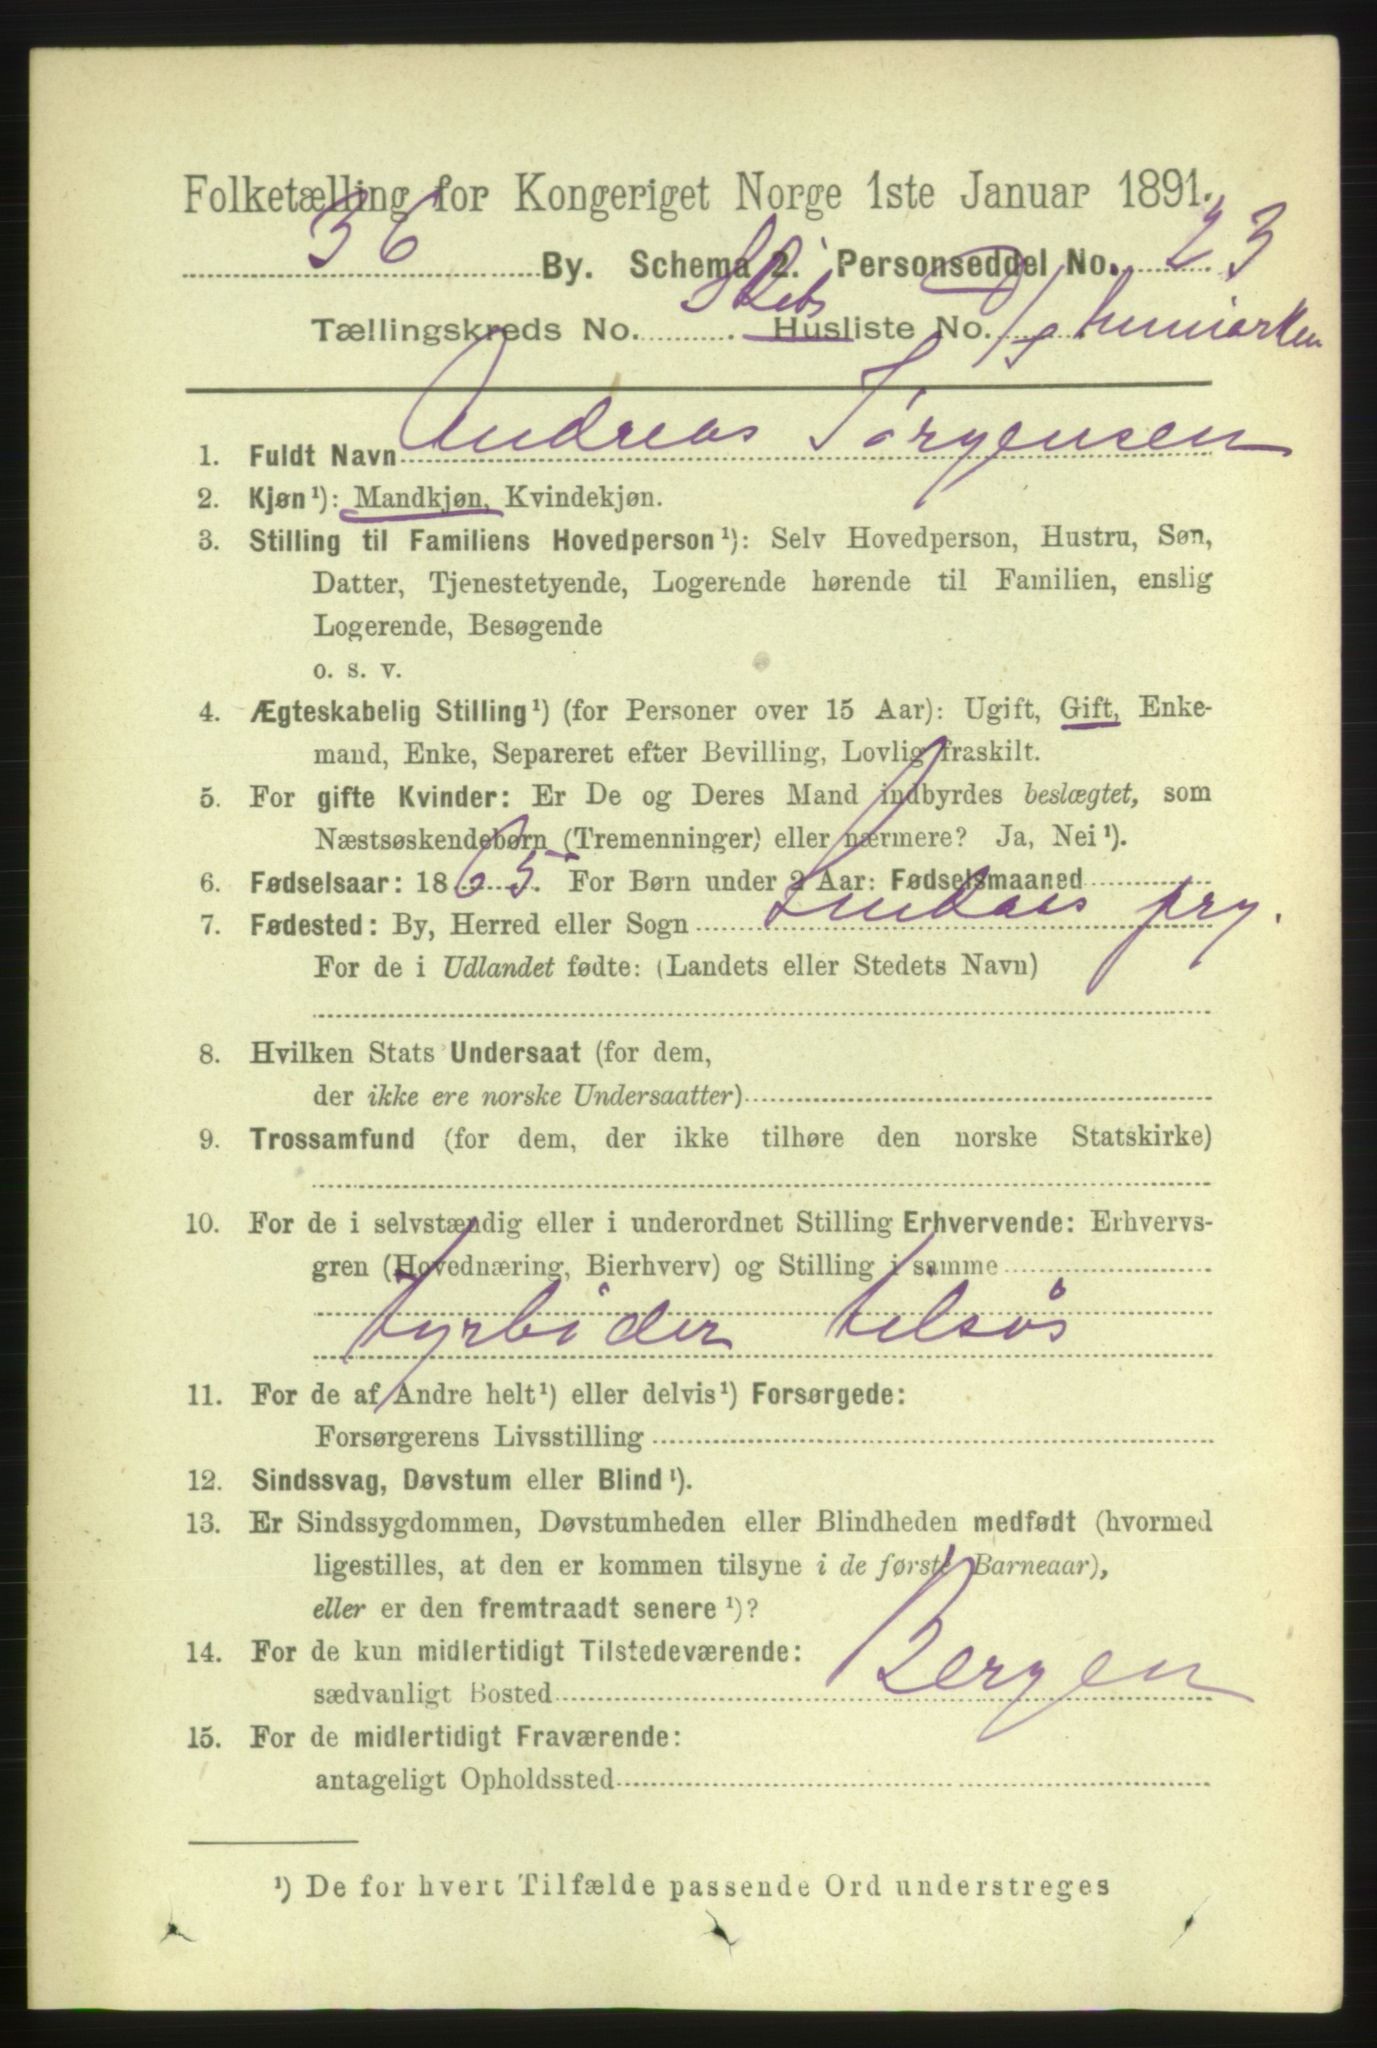 Folketælling for Kongeriget Norge 1ste Januar 1891.
36 By. Schema 2. Personseddel No. 23
Tællingskreds No. Husliste No.
1. Fuldt Navn Andreas Jørgensen
2. Kjøn ¹): Mandkjøn, Kvindekjøn.
3. Stilling til Familiens Hovedperson ¹): Selv Hovedperson, Hustru, Søn,
Datter, Tjenestetyende, Logerende hørende til Familien, enslig
Logerende, Besøgende
o. s. v.
4. Ægteskabelig Stilling ¹) (for Personer over 15 Aar): Ugift, Gift, Enke-
mand, Enke, Separeret efter Bevilling, Lovlig fraskilt.
5. For gifte Kvinder: Er De og Deres Mand indbyrdes beslægtet, som
Næstsøskendebørn (Tremenninger) eller nærmere? Ja, Nei ¹).
6. Fødselsaar: 1865 For Børn under 2 Aar: Fødselsmaaned
7. Fødested: By, Herred eller Sogn Lindaas prg.
For de i Udlandet fødte: (Landets eller Stedets Navn)
8. Hvilken Stats Undersaat (for dem,
der ikke ere norske Undersaatter)
9. Trossamfund (for dem, der ikke tilhøre den norske Statskirke)
10. For de i selvstændig eller i underordnet Stilling Erhvervende: Erhvervs-
gren (Hovednæring, Bierhverv) og Stilling i samme
Fyrbøder tilsøs
11. For de af Andre helt ¹) eller delvis ¹) Forsørgede:
Forsørgerens Livsstilling
12. Sindssvag, Døvstum eller Blind ¹).
13. Er Sindssygdommen, Døvstumheden eller Blindheden medfødt (hvormed
ligestilles, at den er kommen tilsyne i de første Barneaar),
eller er den fremtraadt senere ¹)?
14. For de kun midlertidigt Tilstedeværende:
sædvanligt Bosted Bergen
15. For de midlertidigt Fraværende:
antageligt Opholdssted
¹) De for hvert Tilfælde passende Ord understreges